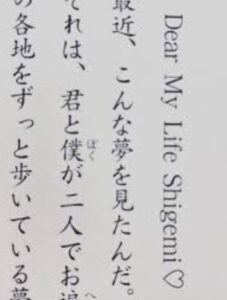 Dear My Life Shigemi♡
最近、こんな夢を見たんだ。
それは、君と僕が二人でお追
の各地をずっと歩いている夢